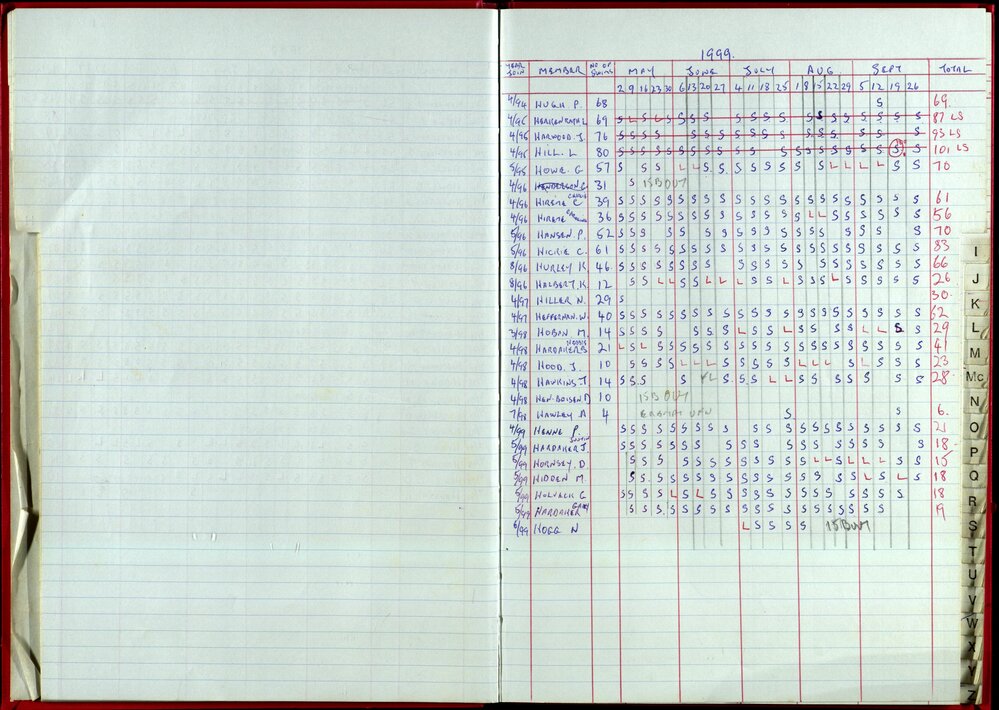 1999.
YEAR JOIN MEMBER NO OF SWIMS MAY JUNE JULY AUG SEPT TOTAL
2 9 16 23 30 6 13 20 27 4 11 18 25 1 8 15 22 29 5 12 19 26
4/94 HUGH P. 68 S 69.
4/95 69 S L S L S S S S S S S S S S S S S S S S 87 LS
4/95 HARWOOD. J. 76 S S S S S S S S S S S S S S S S S 93 LS
4/95 HILL. L 80 S S S S S S S S S S S S S S S S S S S S S 101 LS
5/95 HOWE. G 57 S S S L L S S S S S S S S L L L L S S 70
4/96 HENDERSON C 31 S 15 B OUT
4/96 HIREME C CHRIS 39 S S S S S S S S S S S S S S S S S S S S S S 61
4/96 HIREME 36 S S S S S S S S S S S S S S L L S S S S S 56
5/96 HANSEN. P. 52 S S S S S S S S S S S S S S S S S S 70
5/96 HICKIE C. 61 S S S S S S S S S S S S S S S S S S S S S S 83
8/96 HURLEY K 46 S S S S S S S S S S S S S S S S S S S S 66
8/96 HALBERT. K. 12 S S L L S S L L L S S L S S S L S S S S S 26
4/97 HILLER N. 29 S 30.
4/97 HEFFERNAN. W. 40 S S S S S S S S S S S S S S S S S S S S S S 62
3/98 HOBAN M. 14 S S S S S S L S S L S S S S L L S S 29
4/98 HARDAKER S 21 L S L S S S S S S S S S S S S S S S S S S S 41
4/98 HOOD. J. 10 S S S S L L L S S S S L L L S L S S S 23
4/98 HAWKINS J. 14 S S S S L S S S L L S S S S S S 28
4/98 10 15 B OUT
7/98 HAWLEY A 4 S S 6.
4/99 HENNE P. S S S S S S S S S S S S S S S S S S S S S 21
5/99 HARDAKER J. S S S S S S S S S S S S S S S S S S 18
5/99 HORNSEY. D. S S S S S S S S S S S S L L S L L S S 15
5/99 HIDDEN M. S S S S S S S S S S S S S S S S L S L S 18
5/99 G. S S S S L S L S S S S S S S S S S S S S 18
5/99 HARDAKER GARY S S S S S S S S S S S S S S S S S S S 19
6/99 HOGG N L S S S S 15 B OUT
I
J
K
L
M
Mc
N
O
P
Q
R
S
T
U
V
W
X
Y
Z